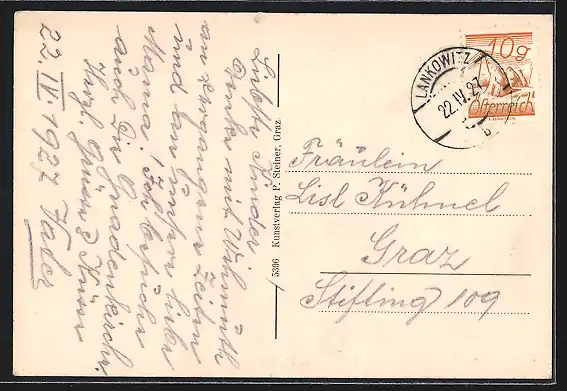 Liebste Kinder!
Denke mit Wehmuth
an vergangene Zeiten
und an unsere liebe
Mama! Ich besuche
auch die Gnadenkirche.
Herzl. Grüsse & Küsse
22. IV. 1927 Vater
5306 Kunstverlag P. Steiner, Graz.
LANKOWITZ
22.IV.27
b
10g
Österreich
Fräulein
Lisl Kühnel
Graz
Stifting 109